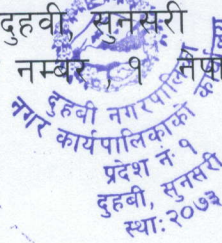 दुहवी, सुनसरी
नम्बर , १ नेपा
दुहबी नगरपालि
नगर कार्यपालिकाको कार्या
प्रदेश नं. १
दुहबी, सुनसरी
स्था: २०७३